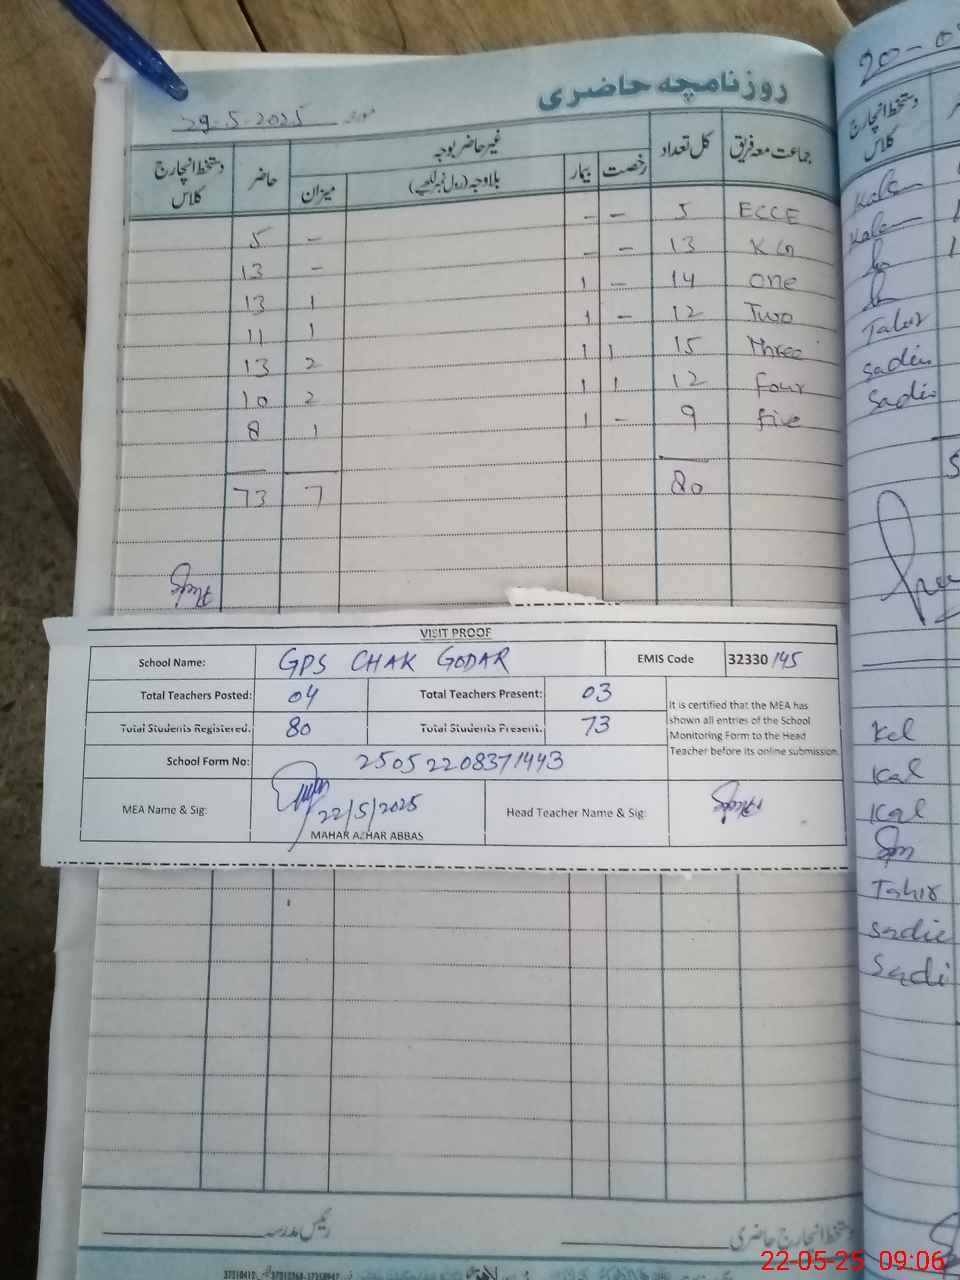 روزنامچہ حاضری
مورخہ 29-5-2025
جماعت معہ فریق کل تعداد غیر حاضر بوجہ حاضر دستخط انچارج کلاس
رخصت بیمار بلاوجہ (رول نمبر لکھیے) میزان
ECCE 5 - - - 5
KG 13 - - - 13
one 14 - 1 1 13
Two 12 - 1 1 11
Three 15 1 1 2 13
four 12 1 1 2 10
five 9 - 1 1 8
80 7 73
VISIT PROOF
School Name: GPS CHAK GODAR EMIS Code 32330145
Total Teachers Posted: 04 Total Teachers Present: 03
Total Students Registered: 80 Total Students Present: 73
It is certified that the MEA has
shown all entries of the School
Monitoring Form to the Head
Teacher before its online submission
School Form No: 25052208371443
MEA Name & Sig: 22/5/2025 Head Teacher Name & Sig:
MAHAR AZHAR ABBAS
دستخط انچارج حاضری رئیس مدرسہ
20-0
دستخط انچارج
کلاس
Kale
Kale
Tahir
Sadi
Kal
Kal
Kal
Tahir
Sadie
Sadi
22-05-25 09:06